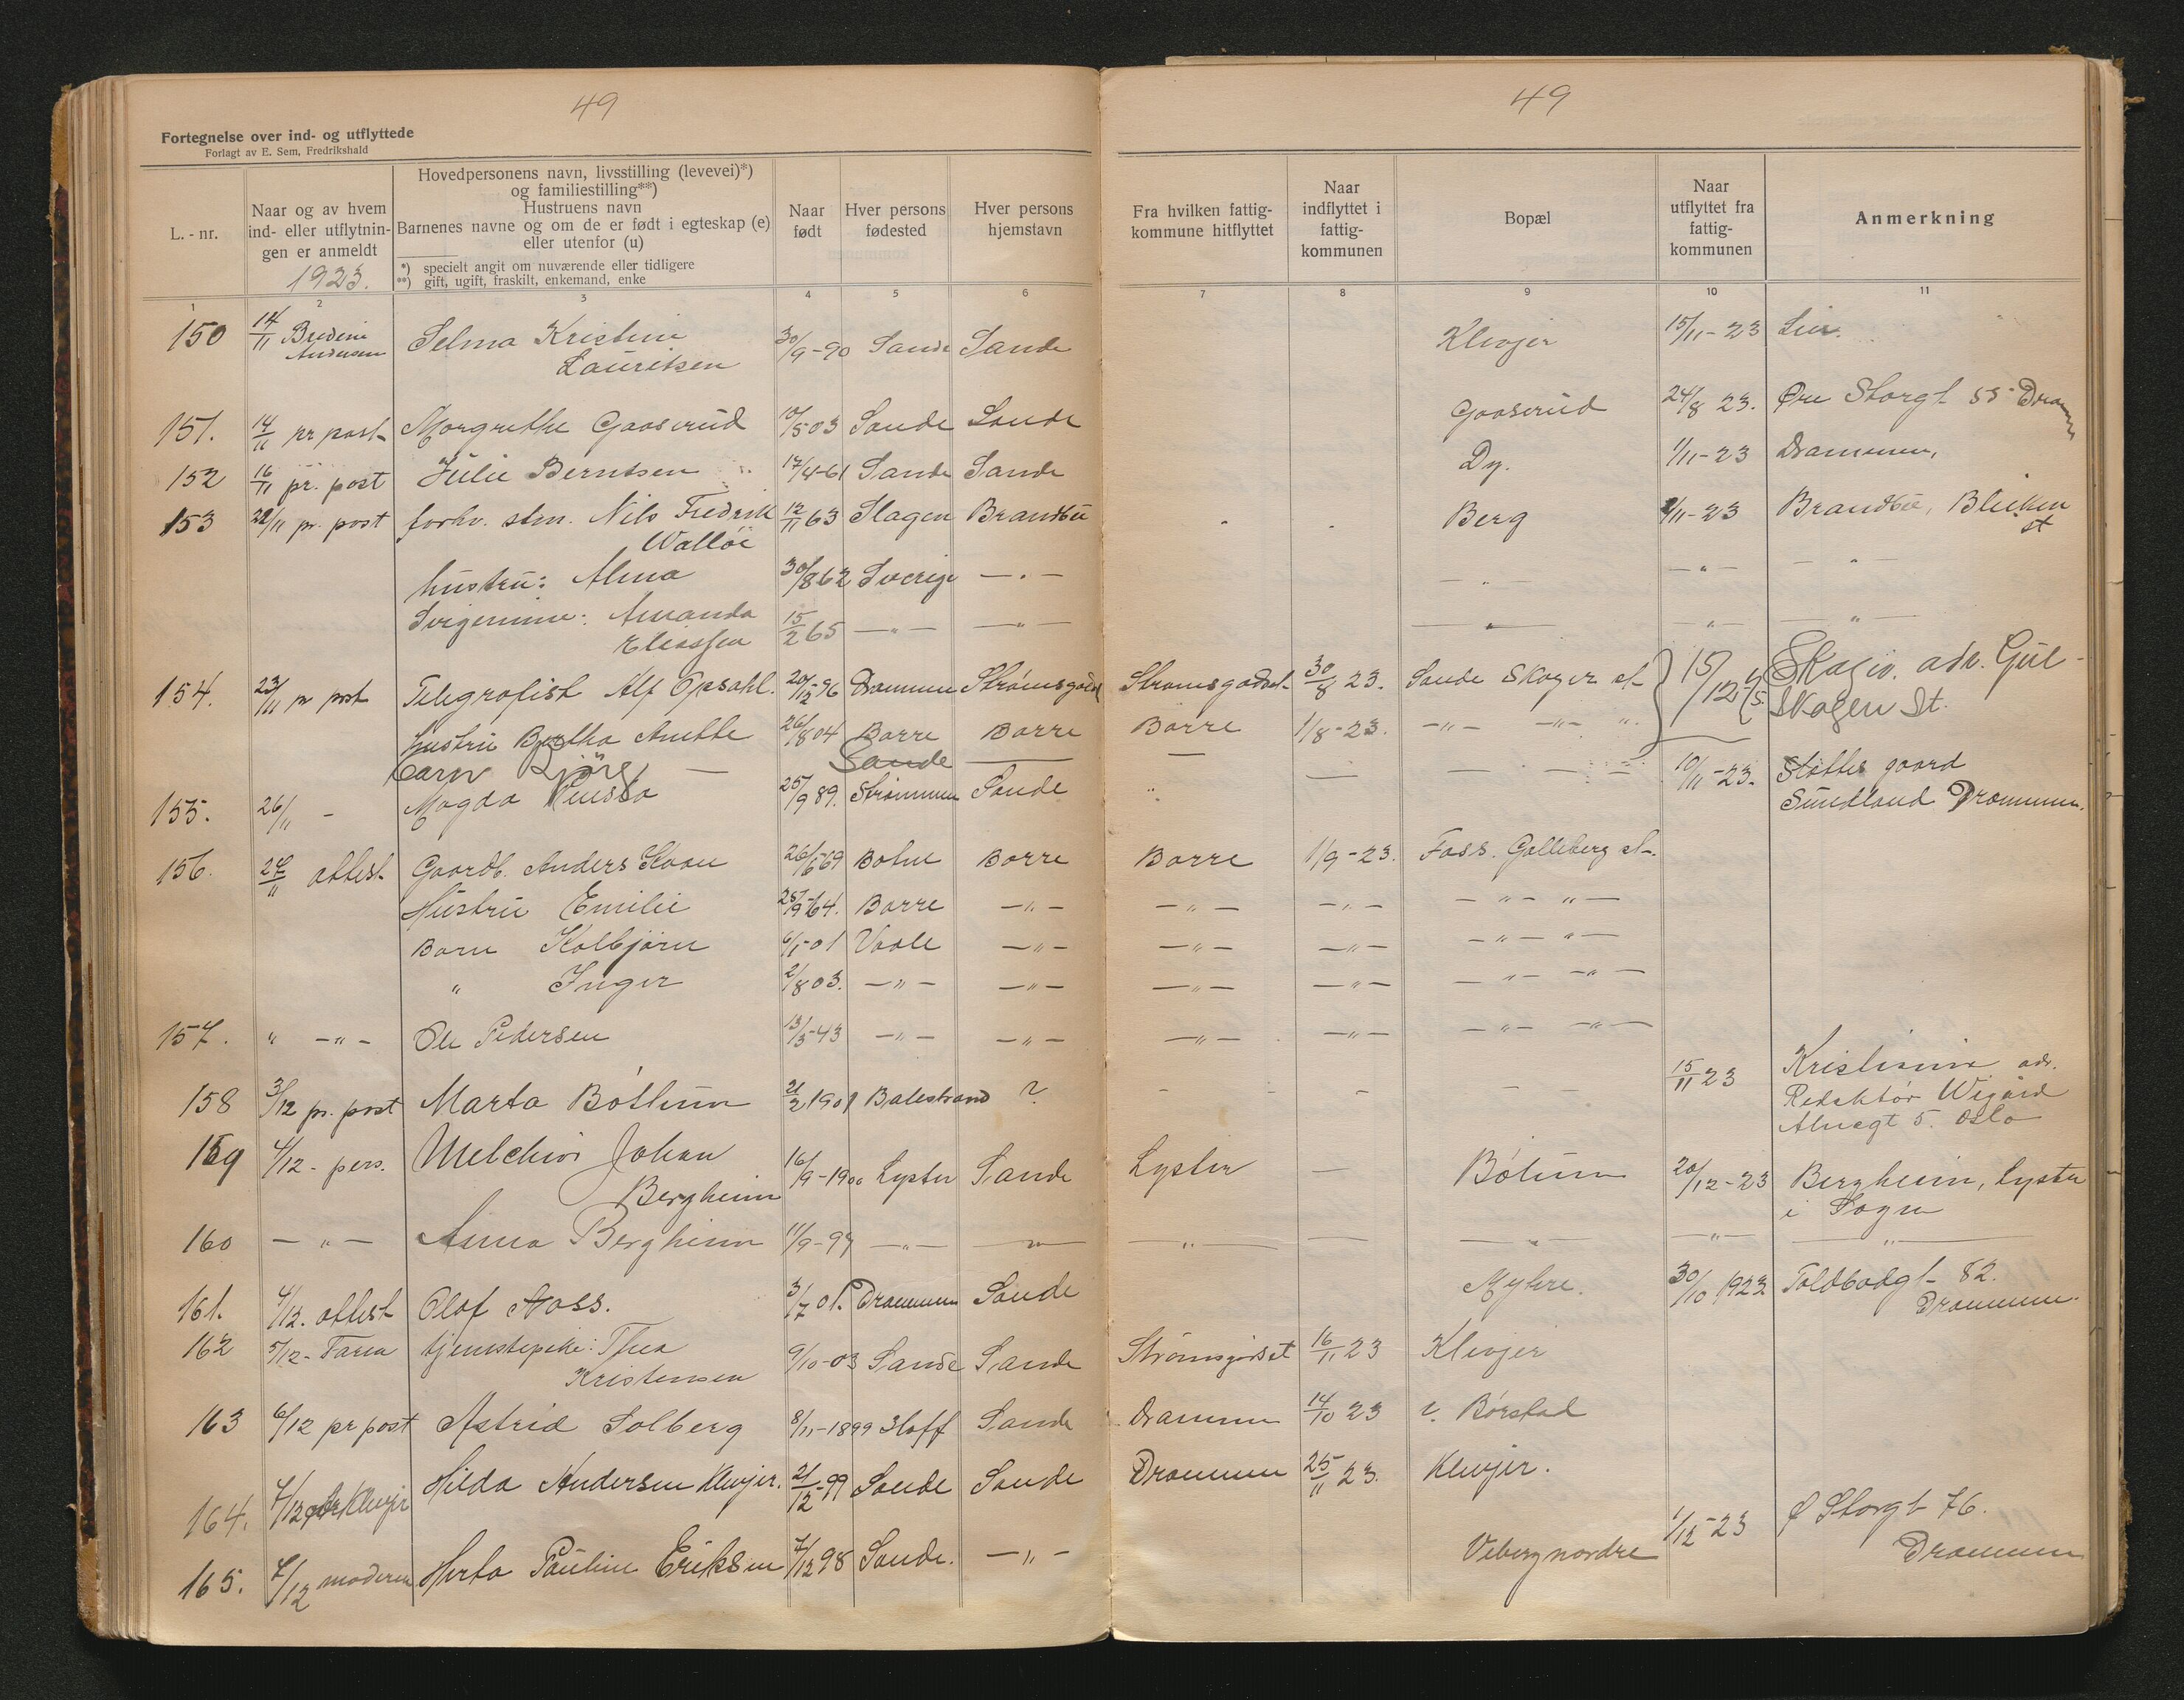 49
49
Fortegnelse over ind- og utflyttede
Forlagt av E. Sem, Fredrikshald
L. - nr.
Naar og av hvem ind- eller utflytnin- gen er anmeldt
1923.
Hovedpersonens navn, livsstilling (levevei)*) og familiestilling**)
Hustruens navn
Barnenes navne og om de er født i egteskap (e) eller utenfor (u)
*) specielt angit om nuværende eller tidligere
**) gift, ugift, fraskilt, enkemand, enke
Naar født
Hver persons fødested
Hver persons hjemstavn
Fra hvilken fattig- kommune hitflyttet
Naar indflyttet i fattig- kommunen
Bopæl
Naar utflyttet fra fattig- kommunen
Anmerkning
1 2 3 4 5 6 7 8 9 10 11
150 14/11 Andersen Selma Kristine 30/9-90 Sande Sande Klevjer 15/11-23 Lier.
Lauritsen
151. 14/11 pr post Margrethe Gaaserud 10/5 03 Sande Sande Gaaserud 24/8 23. Øvre Storgt 55 Dramm
152 16/11 pr. post Julie Berntsen 17/4-61 Sande Sande Dy. 1/11-23 Drammen,
153 22/11 pr. post forhv. stm. Nils Fredrik 12/11 63 Slagen Brandbu Berg 1/11-23 Brandbu, Bleiken st
Walløe
hustru: Alma 30/8 62 Sverige — " — — " — — " — — " —
Amanda 15/2 65 — " — — " — — " — — " — — " —
Eliassen
154. 23/11 pr post Telegrafist Alf Opsahl. 20/12-96 Drammen Strømsgodset Strømsgodset 30/8 23. Sande Skoger st 15/12 Gul-
Skogen St.
hustru Bertha Anette 26/8 04 Borre Borre Borre 1/8-23. — " — — " — "
barn Bjørg — Sande —
155. 26/11 - Magda 25/9 89. Strømmen Sande 10/11-23. Støttes gaard
Sundland Drammen.
156. 27/11 attest Gaardb. Anders Skaan 26/6-69 Botne Borre Borre 1/9-23. Foss. Galleberg st-.
Hustru Emilie 25/9-64. Borre — " — — " — — " — — " — " —
Barn Kolbjørn 6/1-01 Vaale — " — — " — — " — — " — " —
" Inger 2/8 03. — " — — " — — " — — " — — " — — " —
157. " — " — Ole Pedersen 13/5-43 — " — — " — — " — — " — — " — — " —
158 3/12 pr. post Marta Bøthun 21/2 1901 Balestrand ? - - - - - 15/11 23 Kristiania adr.
Redaktør Wigård
5. Oslo
159 4/12 - pers. Melchior Johan 16/9-1900 Lyster Sande Lyster — Bøtun 20/12-23 Bergheim, Lyster
Bergheim i Sogn
160 — " — Anna Bergheim 11/9-97 — " — — " — — " — — — " — — " — — " —
161. 4/12. attest Olaf Aass. 3/7 01. Drammen Sande Myhre. 30/10 1923 Toldbodgt- 82.
Drammen.
162 5/12- tjenstepike: Thea 9/10-03 Sande Sande Strømsgodset 16/11 23 Klevjer
Kristensen
163 6/12 pr post Astrid Solberg 8/11-1899 Hoff Sande Drammen 14/10 23 v. Børstad
164. 7/12 Klevjer Hilda Andersen Klevjer. 21/12-99 Sande Sande Drammen 25/11 23. Klevjer.
165. 7/12 moderen Herta Pauline Eriksen 7/12 98 Sande. — " — Veberg nordre 1/12-23 Ø Storgt 76.
Drammen